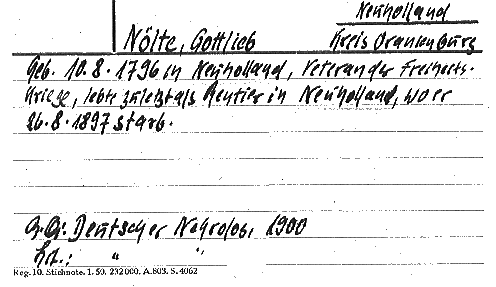 Neuholland
Nölte, Gottlieb Kreis Oranienburg
Geb. 10.8.1796 in Neuholland, Veteran der Freiheits-
kriege, lebte zuletzt als Rentier in Neuholland, wo er
26.8.1897 starb.
Deutscher Nekrolog, 1900
" "
Reg. 10. Stichnote. 1. 50. 232000. A. 803. S. 4062